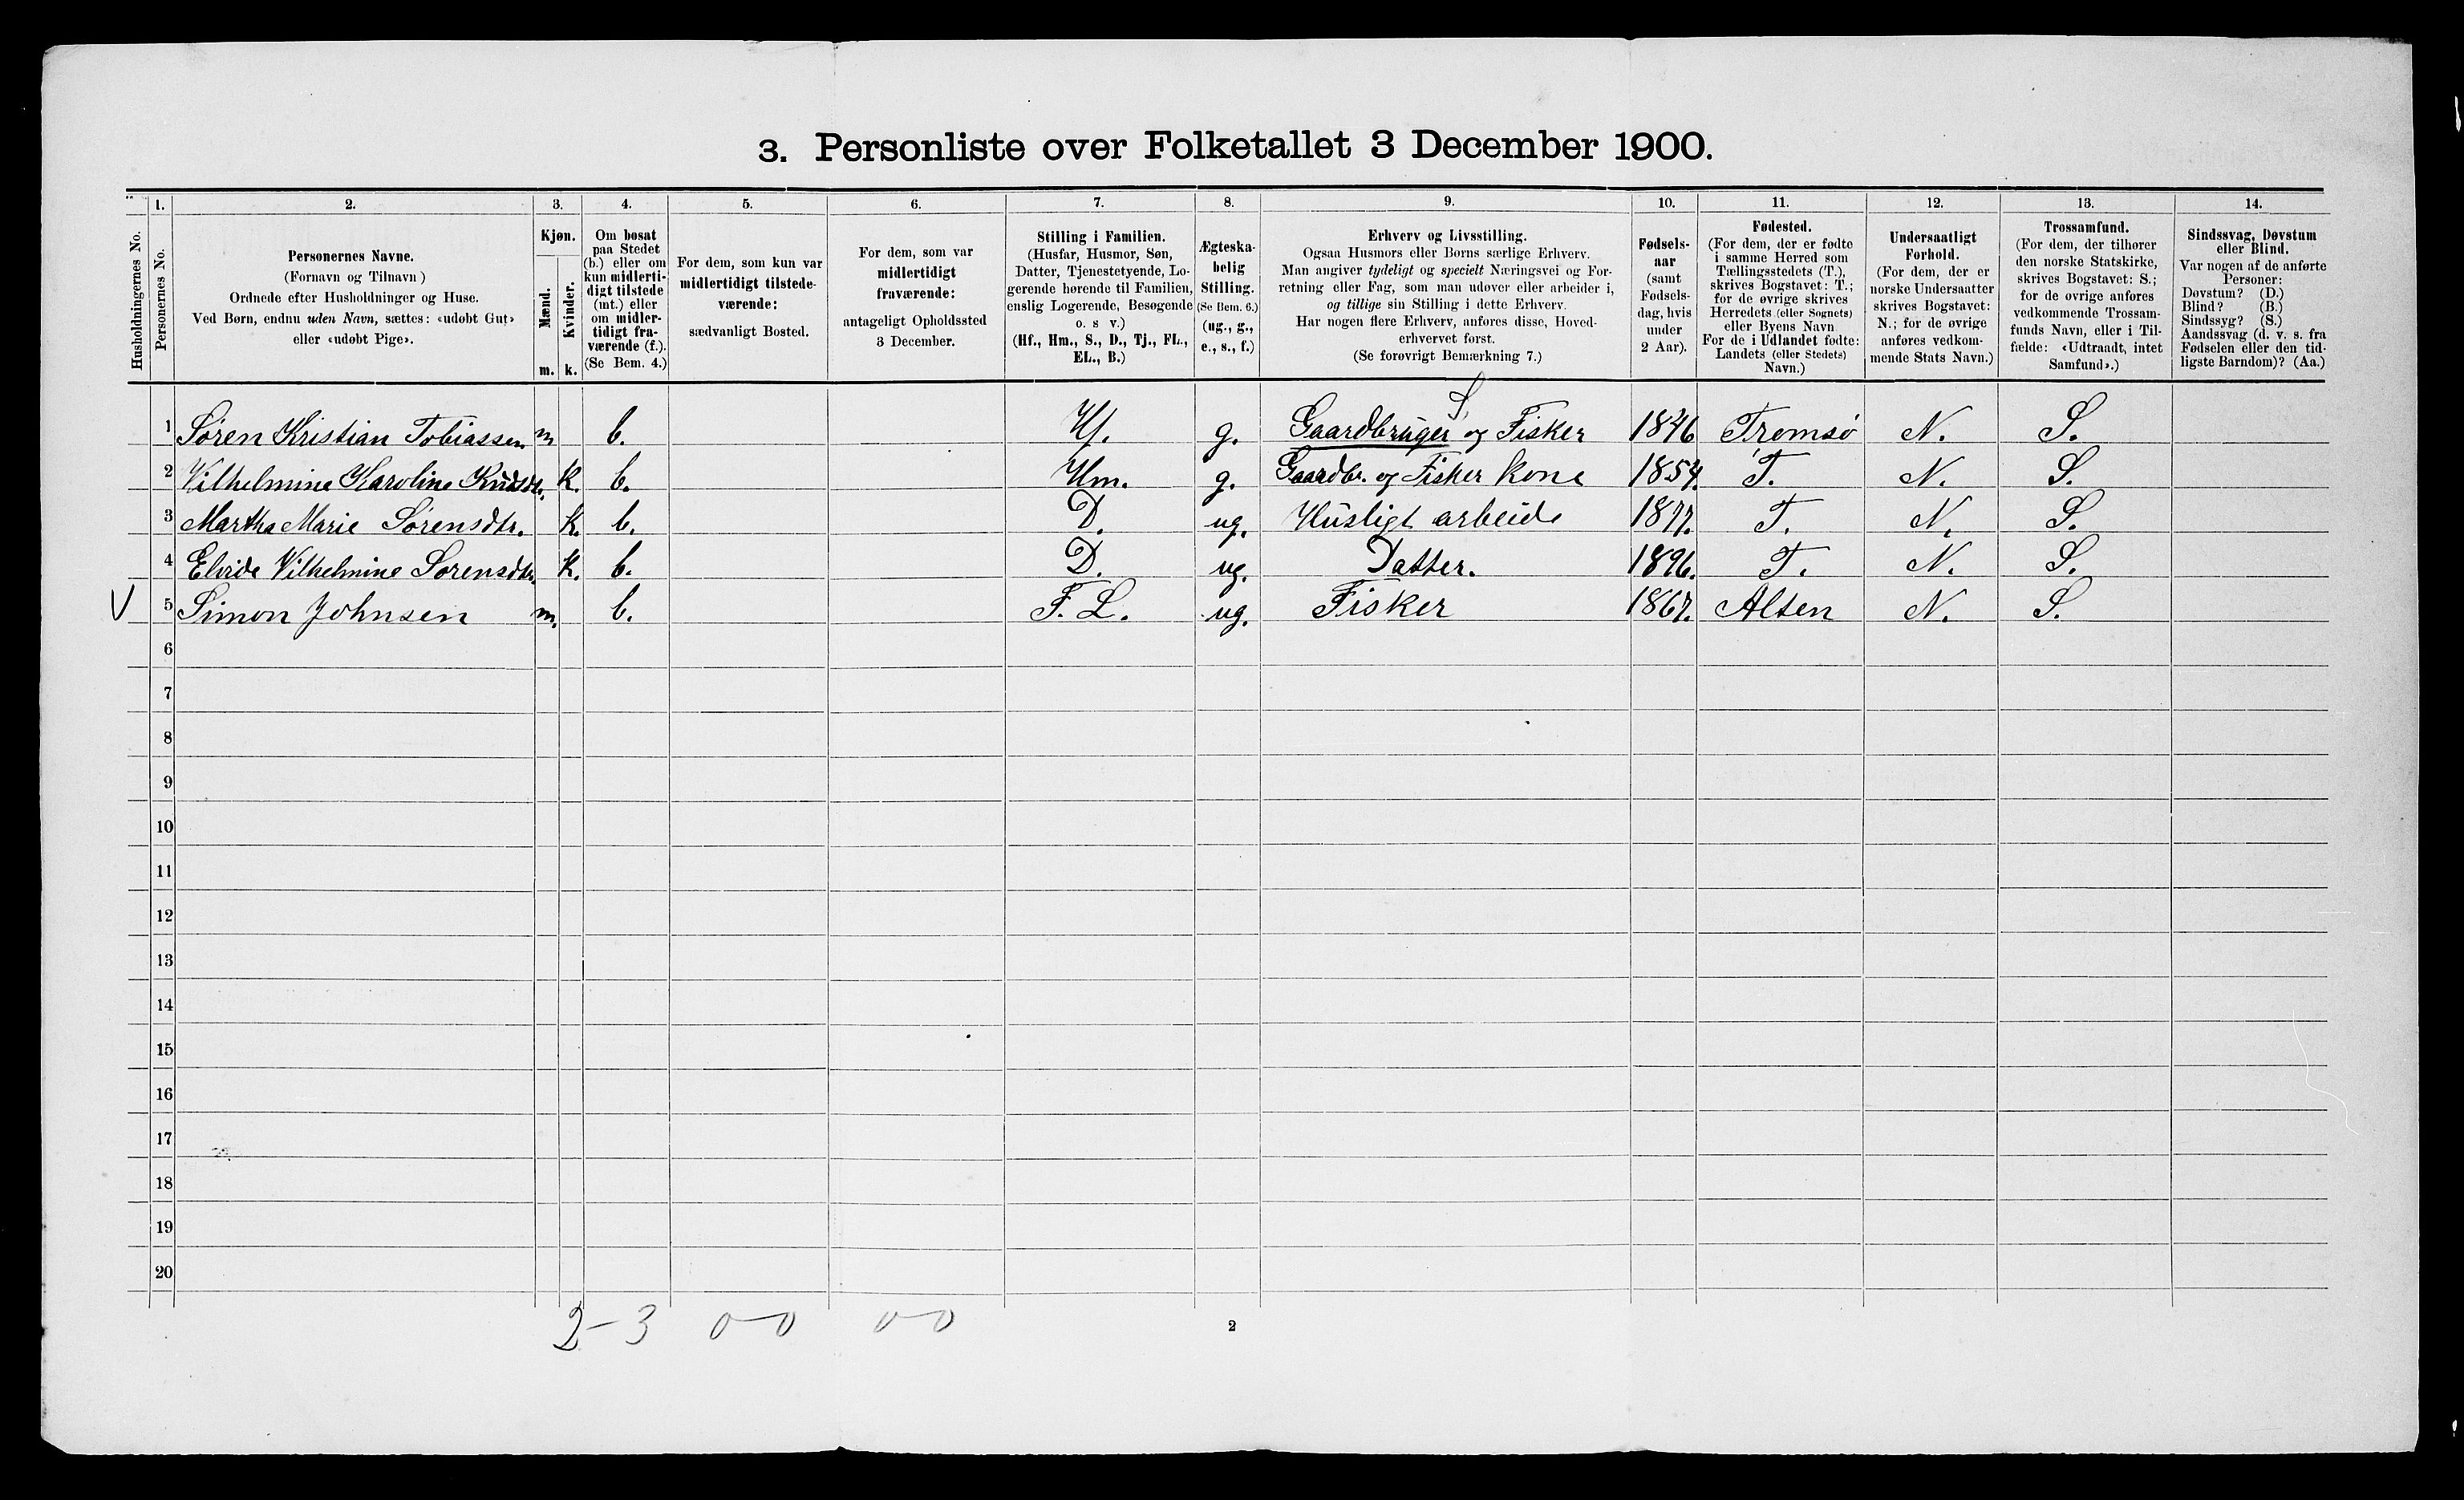 3. Personliste over Folketallet 3 December 1900.
Husholdningernes No.
1.
Personernes No.
2.
Personernes Navne.
(Fornavn og Tilnavn)
Ordnede efter Husholdninger og Huse.
Ved Børn, endnu uden Navn, sættes: «udøbt Gut»
eller «udøbt Pige».
3.
Kjøn.
Mænd.
Kvinder.
m. k.
4.
Om bosat
paa Stedet
(b.) eller om
kun midlerti-
digt tilstede
(mt.) eller
om midler-
tidigt fra-
værende (f.).
(Se Bem. 4.)
5.
For dem, som kun var
midlertidigt tilstede-
værende:
sædvanligt Bosted.
6.
For dem, som var
midlertidigt
fraværende:
antageligt Opholdssted
3 December.
7.
Stilling i Familien.
(Husfar, Husmor, Søn,
Datter, Tjenestetyende, Lo-
gerende hørende til Familien,
enslig Logerende, Besøgende
o. s v.)
(Hf., Hm., S., D., Tj., FL.,
EL., B.)
8.
Ægteska-
belig
Stilling.
(Se Bem. 6.)
(ug., g.,
e., s., f.)
9.
Erhverv og Livsstilling.
Ogsaa Husmors eller Børns særlige Erhverv.
Man angiver tydeligt og specielt Næringsvei og For-
retning eller Fag, som man udøver eller arbeider i,
og tillige sin Stilling i dette Erhverv.
Har nogen flere Erhverv, anføres disse, Hoved-
erhvervet først.
(Se forøvrigt Bemærkning 7.)
10.
Fødsels-
aar
(samt
Fødsels-
dag, hvis
under
2 Aar).
11.
Fødested.
(For dem, der er fødte
i samme Herred som
Tællingsstedets (T.),
skrives Bogstavet: T.;
for de øvrige skrives
Herredets (eller Sognets)
eller Byens Navn
For de i Udlandet fødte:
Landets (eller Stedets)
Navn.)
12.
Undersaatligt
Forhold.
(For dem, der er
norske Undersaatter
skrives Bogstavet:
N.; for de øvrige
anføres vedkom-
mende Stats Navn.)
13.
Trossamfund.
(For dem, der tilhører
den norske Statskirke,
skrives Bogstavet: S.;
for de øvrige anføres
vedkommende Trossam-
funds Navn, eller i Til-
fælde: «Udtraadt, intet
Samfund».)
14.
Sindssvag, Døvstum
eller Blind.
Var nogen af de anførte
Personer:
Døvstum? (D.)
Blind? (B.)
Sindssyg? (S.)
Aandssvag (d. v. s. fra
Fødselen eller den tid-
ligste Barndom)? (Aa.)
S
1 Søren Kristian Tobiassen m b. Hf. g. Gaardbruger og Fisker 1846 Tromsø N. S.
2 Vilhelmine Karoline Knudsdtr. K. b. Hm. g. Gaardbr. og Fisker kone 1854. T. N. S.
3 Martha Marie Sørensdtr. K. b. D. ug. Husligt arbeide 1877. T. N. S.
4 Elvide Vilhelmine Sørensdtr. K. b. D. ug. Datter. 1896. T. N. S.
V 5 Simon Johnsen m. b. F. L. ug. Fisker 1867. Alten N. S.
6
7
8
9
10
11
12
13
14
15
16
17
18
19
20
2-3 0-0 0-0
2